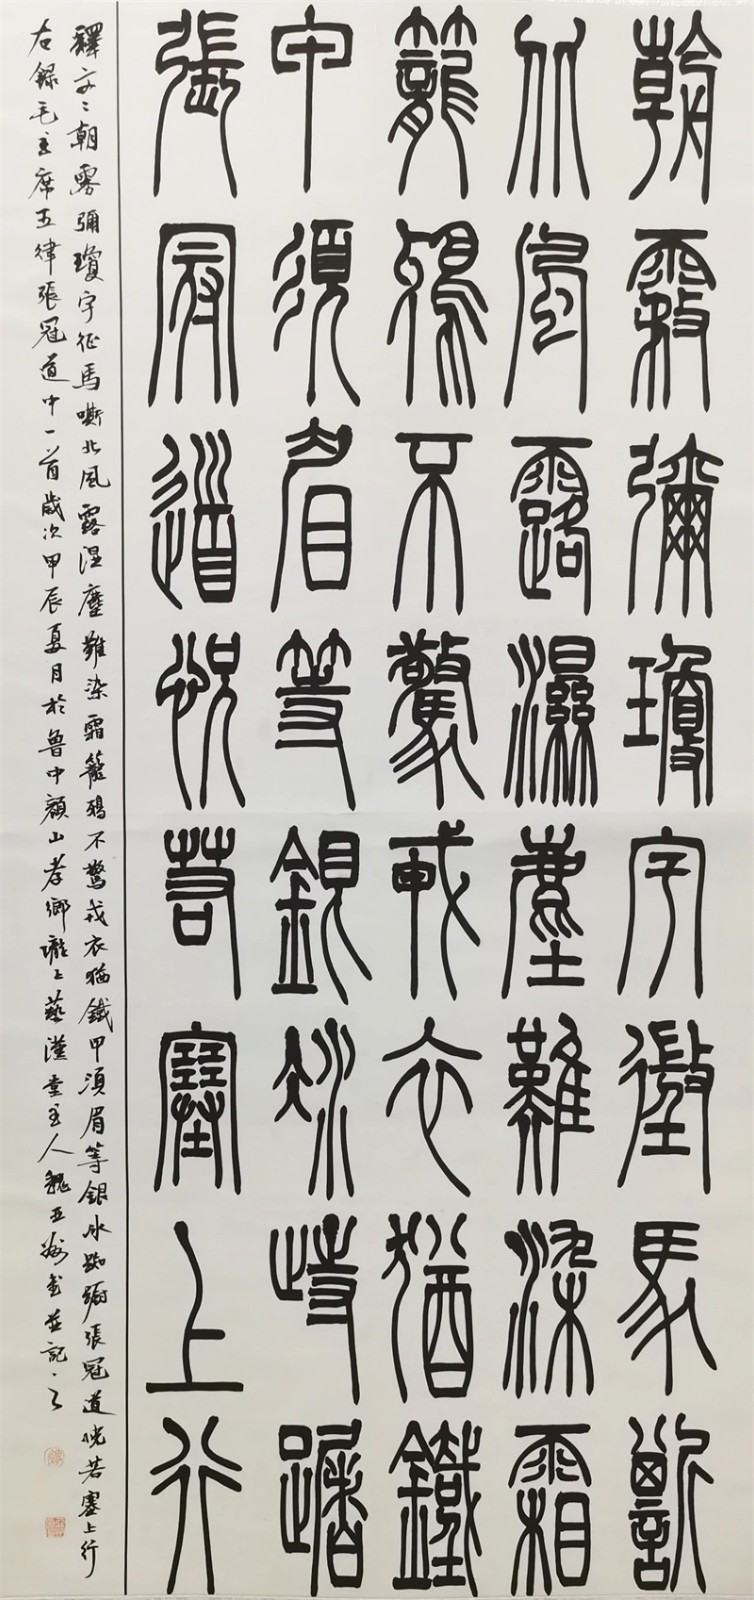 朝霧彌瓊宇徵馬嘶
北風露濕塵難染霜
籠鴉不驚戎衣猶鐵
甲須眉等銀冰歭躇
張冠道恍若塞上行
釋文：朝雾彌瓊宇征馬嘶北風露湿塵難染霜籠鴉不驚戎衣猶鐵甲須眉等銀冰踟蹰張冠道恍若塞上行
右錄毛主席五律張冠道中一首歲次甲辰夏月於魯中顏山孝鄉瓏上藝漢堂主人魏書並記之